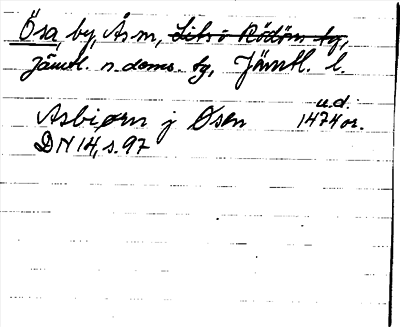 Ösa, by, Ås sn, Liths o Rödöns tg,
Jämtl. n. doms. tg, Jämtl. l.
u.d.
Asbiørn j Øsen 1474 or.
DN 14, s. 97